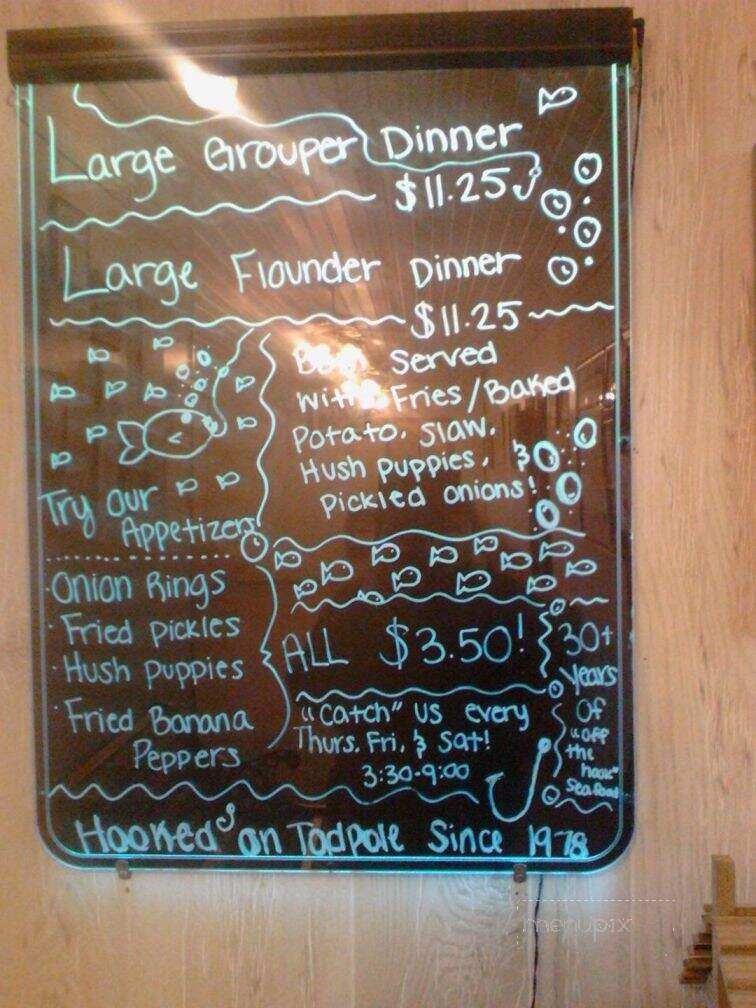 Large Grouper Dinner
$11.25
Large Flounder Dinner
$11.25
Both Served
with Fries/Baked
Potato, Slaw,
Hush puppies, &
Pickled onions!
Try our
Appetizers!
· Onion Rings
· Fried pickles
· Hush puppies
· Fried Banana
Peppers
ALL $3.50!
"Catch" us every
Thurs. Fri, & Sat!
3:30-9:00
30+
Years
Of
"off
the
hook"
Seafood
Hooked on Tadpole Since 1978
menupix